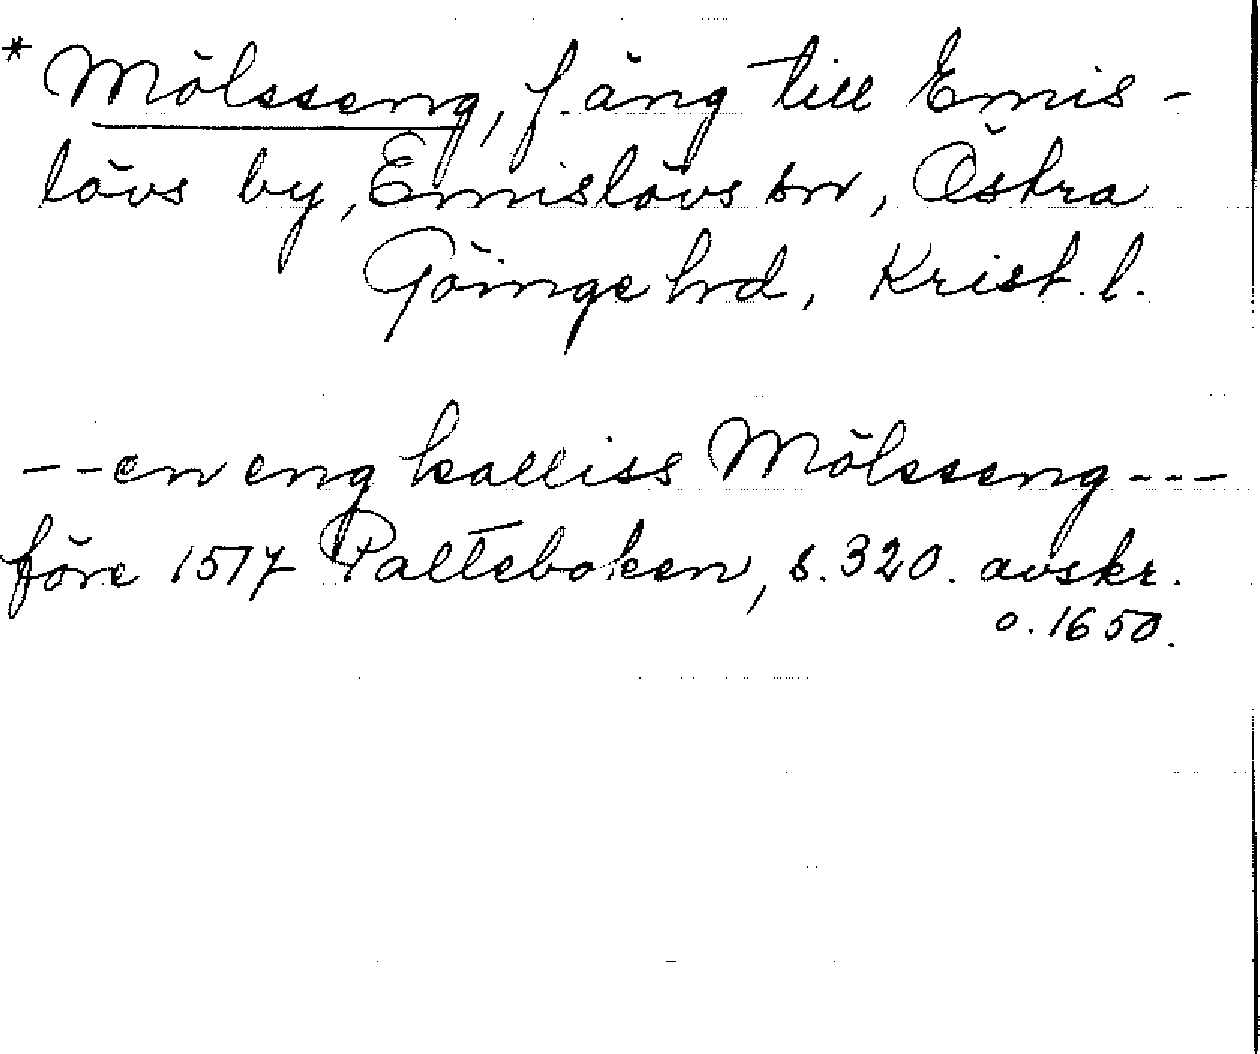 * Mölsseng, f. äng till Emis-
lövs by, Emislövs sn, Östra
Göinge hd, Krist. l.
-- en eng kalliss Mölsseng ---
före 1517 Palteboken, s. 320. avskr.
o. 1650.